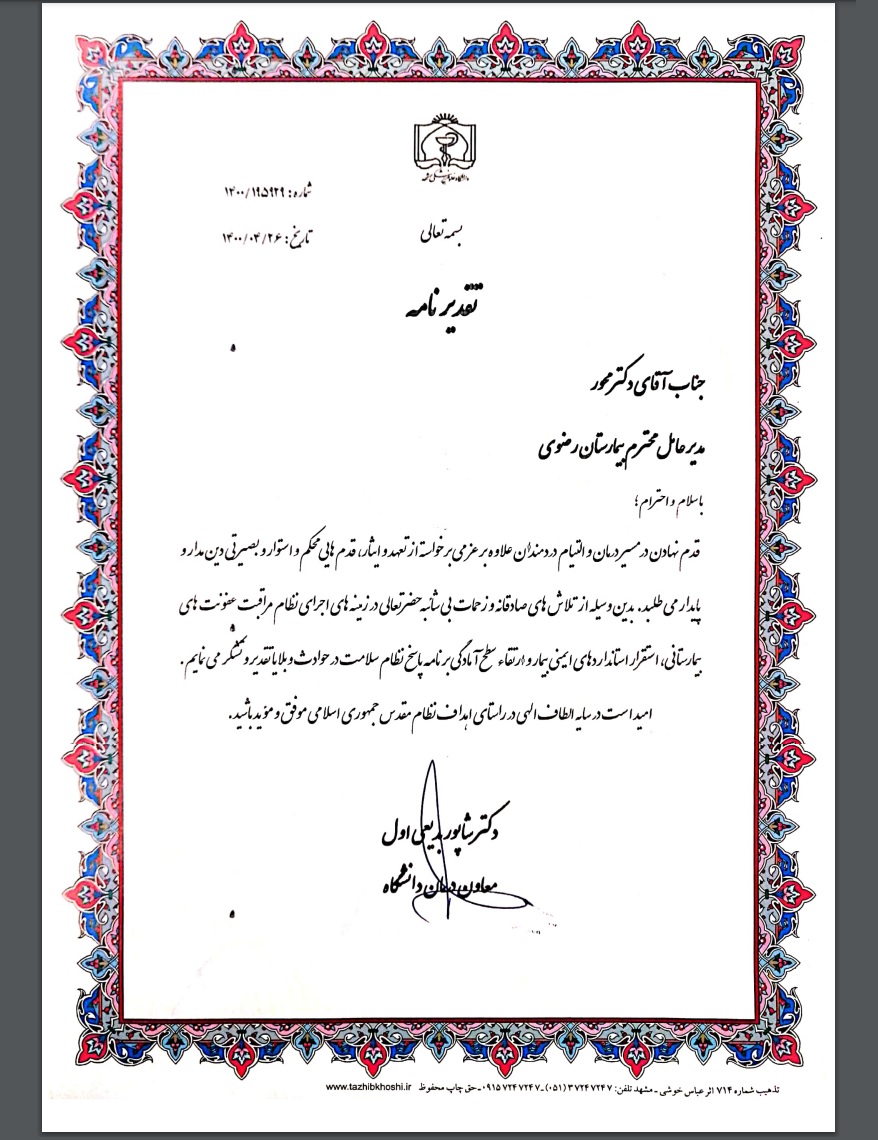 دانشگاه علوم پزشکی مشهد
شماره: ۱۴۰۰/۱۹۵۹۲۹
تاریخ: ۱۴۰۰/۰۴/۲۶
بسمه تعالی
تقدیر نامه
جناب آقای دکتر محور
مدیر عامل محترم بیمارستان رضوی
باسلام و احترام؛
قدم نهادن در مسیر درمان و التیام دردمندان علاوه بر عزمی برخواسته از تعهد و ایثار، قدم هایی محکم و استوار و بصیرتی دین مدار و
پایدار می طلبد. بدین وسیله از تلاش های صادقانه و زحمات بی شائبه حضرتعالی در زمینه های اجرای نظام مراقبت عفونت های
بیمارستانی، استقرار استانداردهای ایمنی بیمار و ارتقاء سطح آمادگی برنامه پاسخ نظام سلامت در حوادث و بلایا تقدیر و تشکر می نمایم.
امید است در سایه الطاف الهی در راستای اهداف نظام مقدس جمهوری اسلامی موفق و مؤید باشید.
دکتر شاپور بدیعی اول
معاون درمان دانشگاه
تذهیب شماره ۷۱۴ اثر عباس خوشی ـ مشهد تلفن: ۳۷۲۴۷۲۴۷ (۰۵۱) ـ ۰۹۱۵۷۲۴۷۲۴۷ ـ حق چاپ محفوظ www.tazhibkhoshi.ir